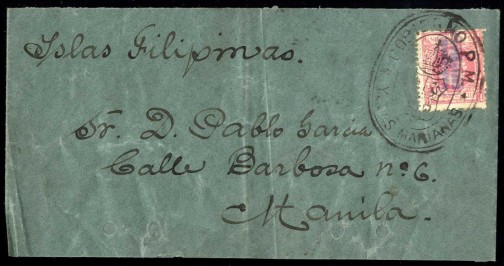 Islas Filipinas.
GOBIERNO P.M.
S. MARIANAS
Sr. D. Pablo Garcia
Calle Barbosa nº 6.
Manila.